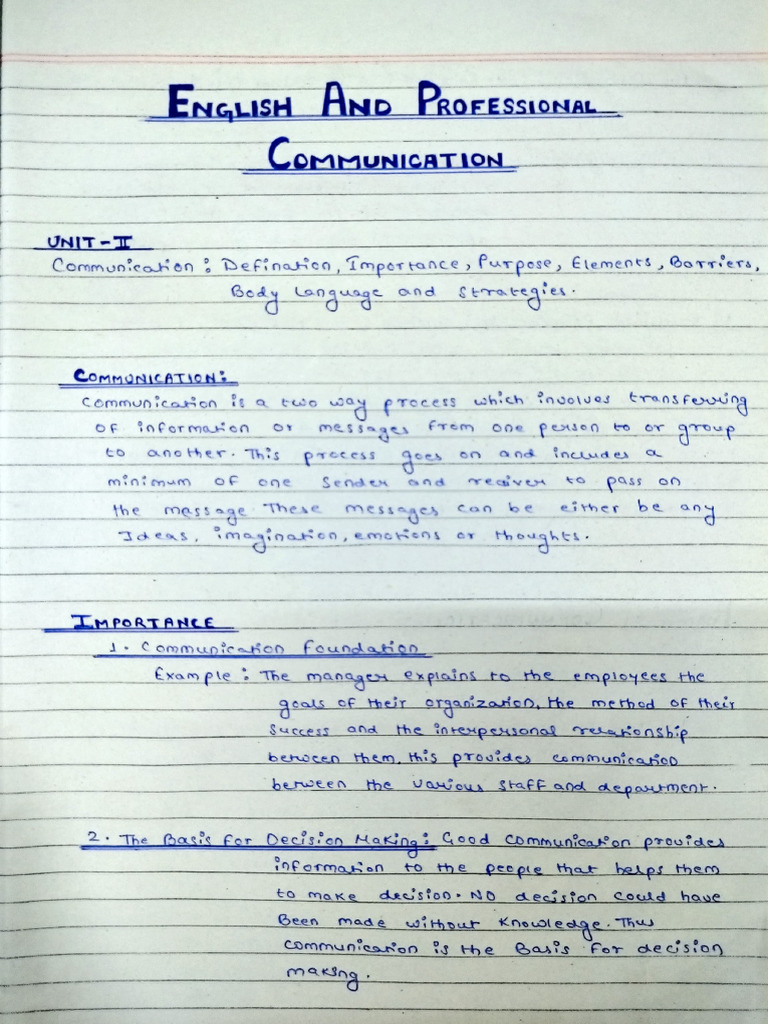 ENGLISH AND PROFESSIONAL
COMMUNICATION
UNIT-II
Communication : Defination, Importance, Purpose, Elements, Barriers,
Body Language and Strategies.
COMMUNICATION:
Communication is a two way process which involves transferring
of information or messages from one person to or group
to another. This process goes on and includes a
minimum of one Sender and reciver to pass on
the message. These messages can be either be any
Ideas, imagination, emotions or thoughts.
IMPORTANCE
1. Communication Foundation
Example : The manager explains to the employees the
goals of their organization, the method of their
success and the interpersonal relationship
between them, this provides communication
between the various staff and department.
2. The Basis For Decision Making: Good communication provides
information to the people that helps them
to make decision. No decision could have
Been made without knowledge. Thus
communication is the Basis for decision
making.